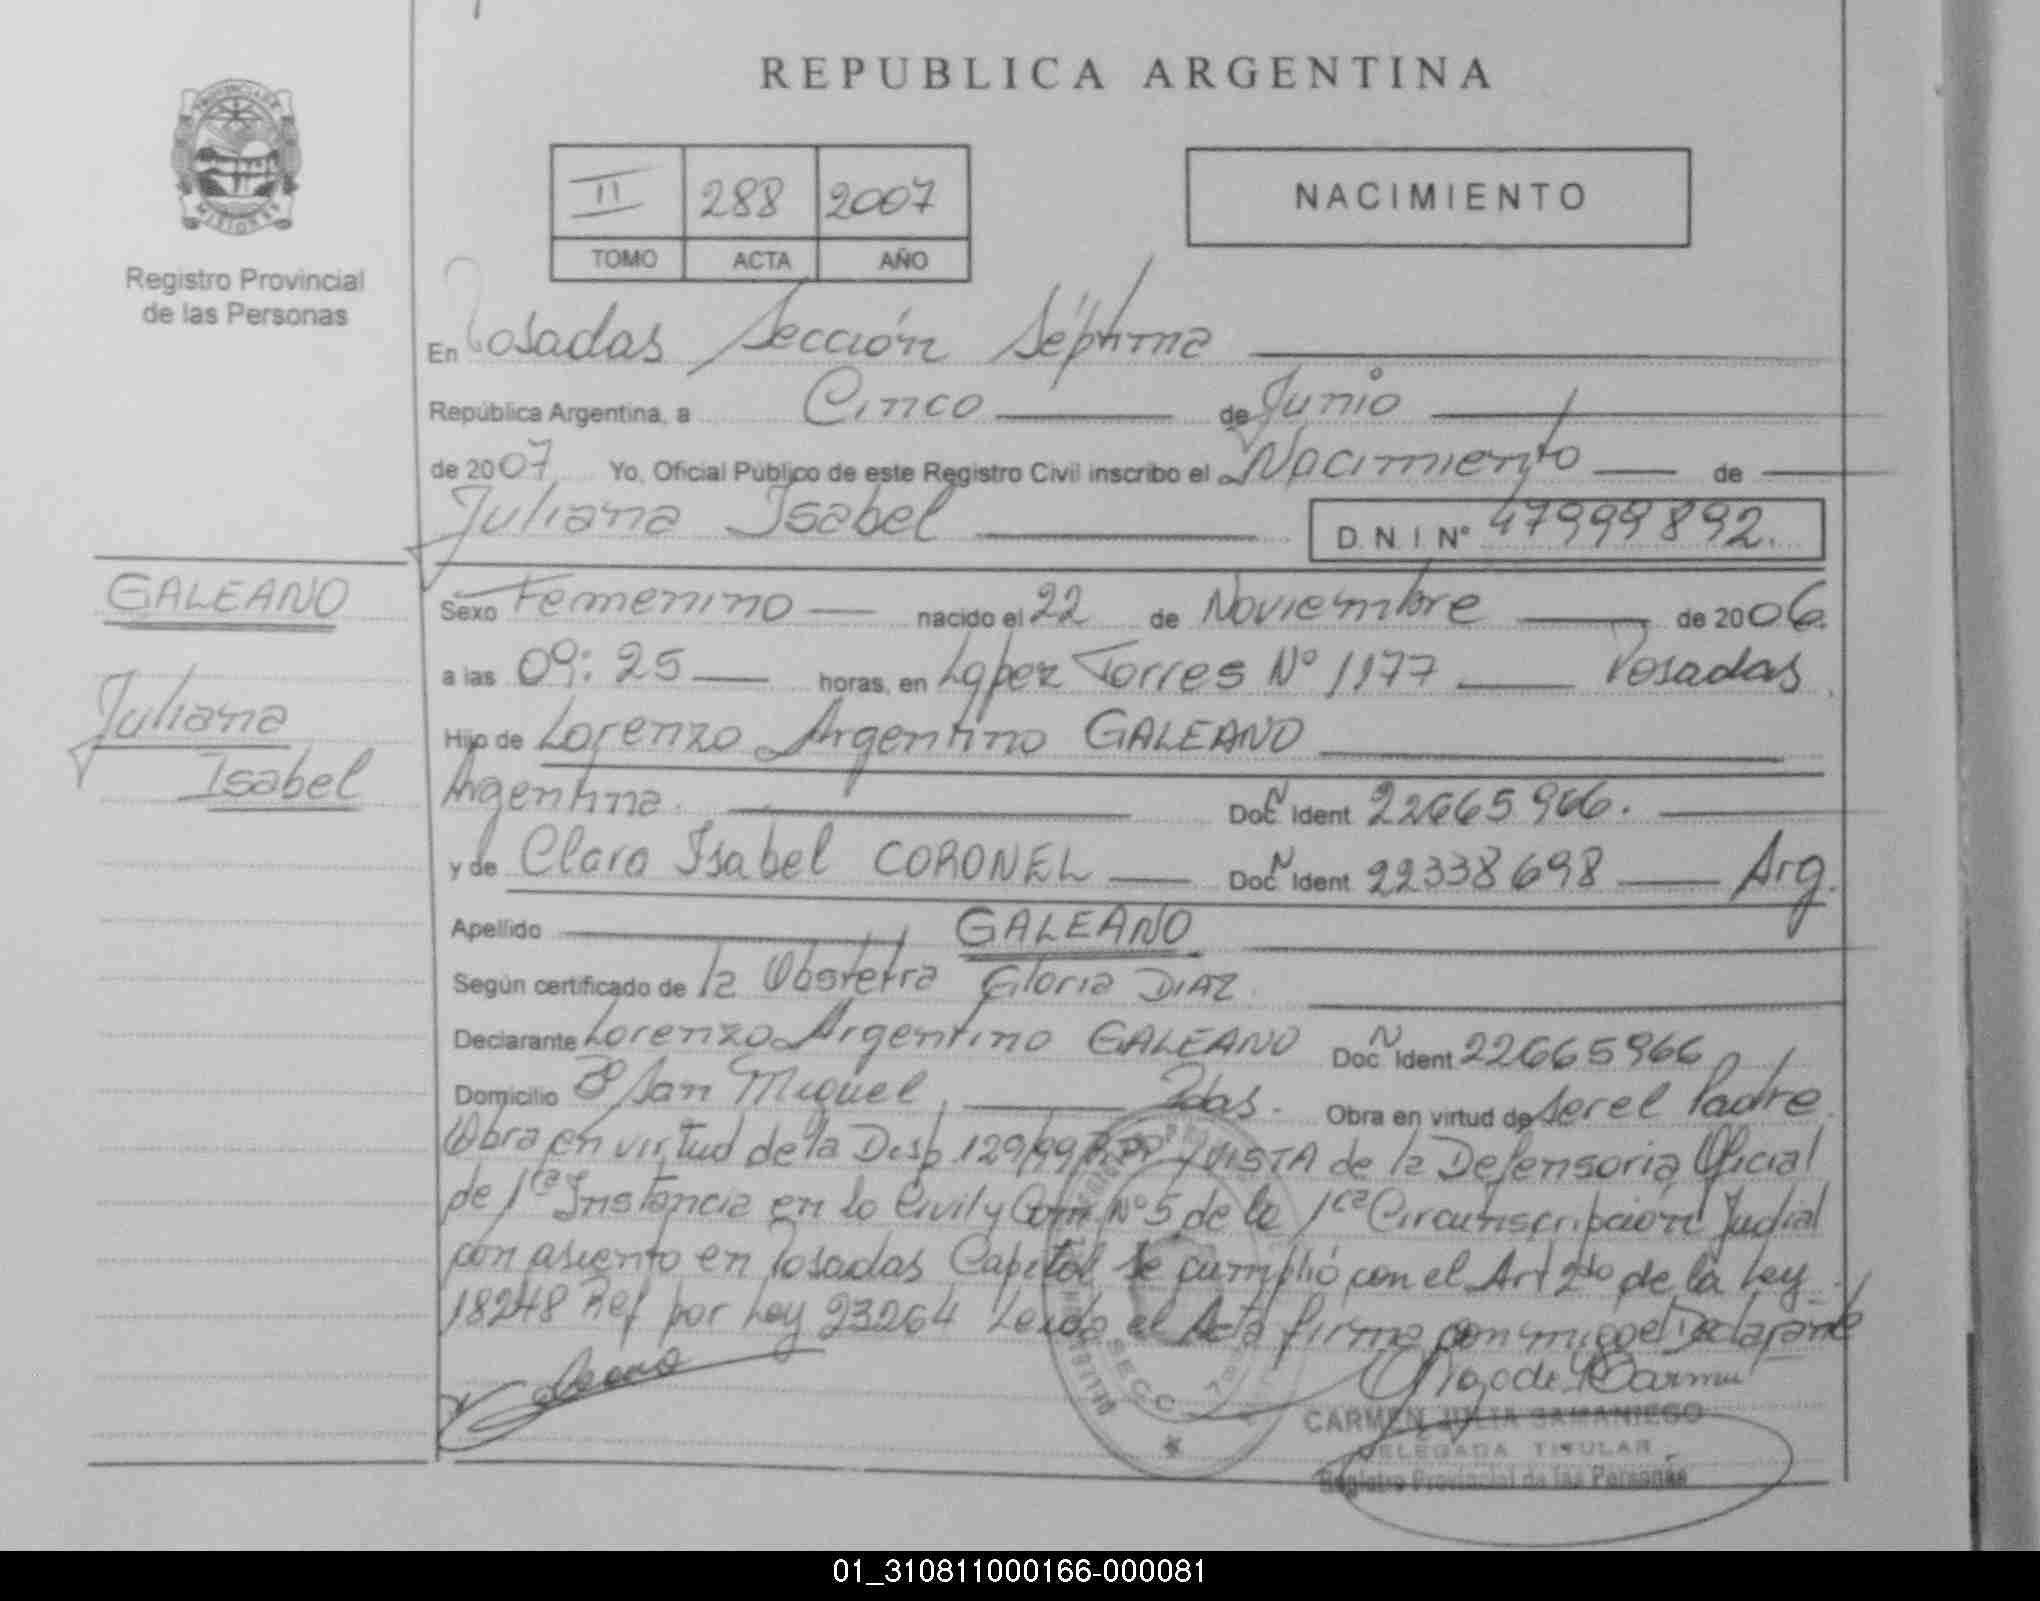 REPUBLICA ARGENTINA
PROVINCIA DE
MISIONES
Registro Provincial
de las Personas
II 288 2007
TOMO ACTA AÑO
NACIMIENTO
En Posadas Sección Séptima
República Argentina, a Cinco de Junio
de 2007 Yo, Oficial Público de este Registro Civil inscribo el Nacimiento de
Juliana Isabel D.N.I Nº 47999892.
GALEANO
Juliana
Isabel
Sexo Femenino nacido el 22 de Noviembre de 2006.
a las 09:25 horas, en López Torres Nº 1177 Posadas
Hijo de Lorenzo Argentino GALEANO
Argentina. Doc N Ident 22665966.
y de Clara Isabel CORONEL Doc N Ident 22338698 Arg.
Apellido GALEANO
Según certificado de la Obstetra Gloria DIAZ
Declarante Lorenzo Argentino GALEANO Doc N Ident 22665966
Domicilio Bº San Miguel Pdas. Obra en virtud de ser el Padre
Obra en virtud de la Disp 129/99 RPP y VISTA de la Defensoria Oficial
de 1ca Instancia en lo Civil y Com Nº 5 de la 1ca Circunscripción Judial
con asiento en Posadas Capital Se cumplió con el Art 2do de la Ley
18248 Ref por Ley 23264 Leida el Acta firma conmigo el Declarante
SECC 7
CARMEN JULIA SAMANIEGO
DELEGADA TITULAR
Registro Provincial de las Personas
01_310811000166-000081